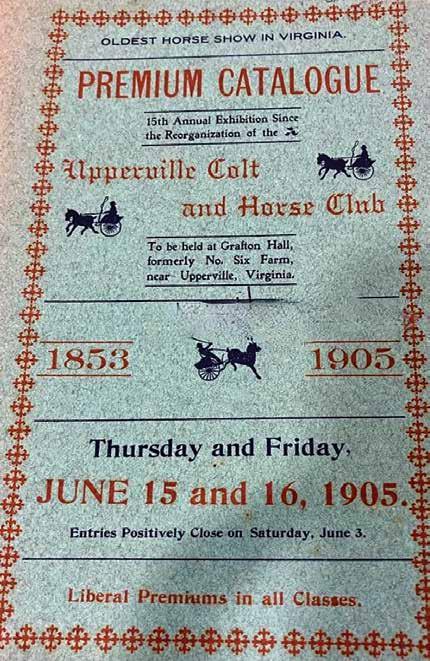 OLDEST HORSE SHOW IN VIRGINIA.
PREMIUM CATALOGUE
15th Annual Exhibition Since
the Reorganization of the
Upperville Colt
and Horse Club
To be held at Grafton Hall,
formerly No. Six Farm,
near Upperville, Virginia.
1853
1905
Thursday and Friday,
JUNE 15 and 16, 1905.
Entries Positively Close on Saturday, June 3.
Liberal Premiums in all Classes.